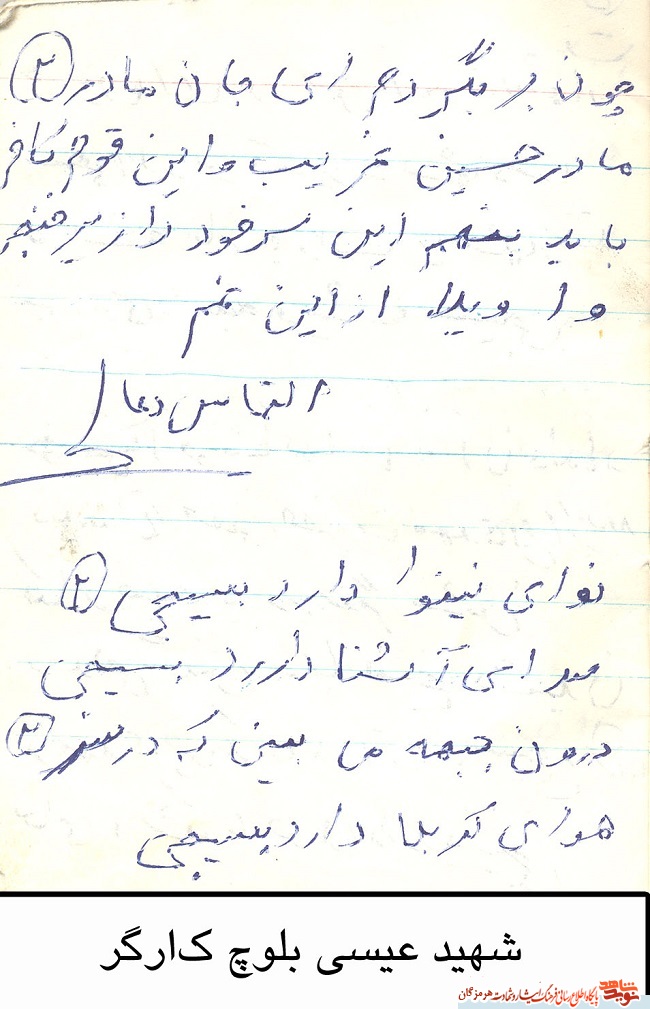 چون برنگردم ای جان مادر (۲)
مادر حسین غریب و این قوم کافر
باید بنهم این سر خود را زیر خنجر
وا ویلا از این غم
التماس دعا
نوای نینوا دارد بسیجی (۲)
صدای آشنا دارد بسیجی
درون جبهه می بینی که در سر (۲)
هوای کربلا دارد بسیجی
شهید عیسی بلوچ کارگر
نوید شاهد پایگاه اطلاع رسانی فرهنگ ایثار و شهادت هرمزگان